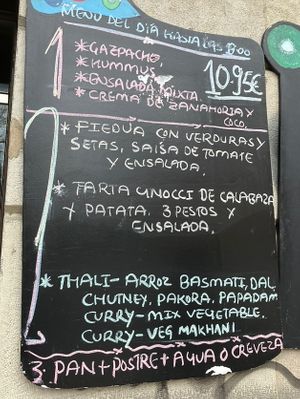 MENU DEL DIA HASTA LAS
1
* GAZPACHO,
* HUMMUS
* ENSALADA MIXTA
* CREMA DE ZANAHORIA Y
COCO.
10.95€
2
* FIEDUA CON VERDURAS Y
SETAS, SALSA DE TOMATE
Y ENSALADA.
* TARTA GNOCCI DE CALABAZA
Y PATATA. 3 PESTOS Y
ENSALADA.
* THALI- ARROZ BASMATI, DAL,
CHUTNEY, PAKORA, PAPADAM
CURRY- MIX VEGETABLE.
CURRY- VEG MAKHANI
3. PAN + POSTRE + AGUA O CREVEZA